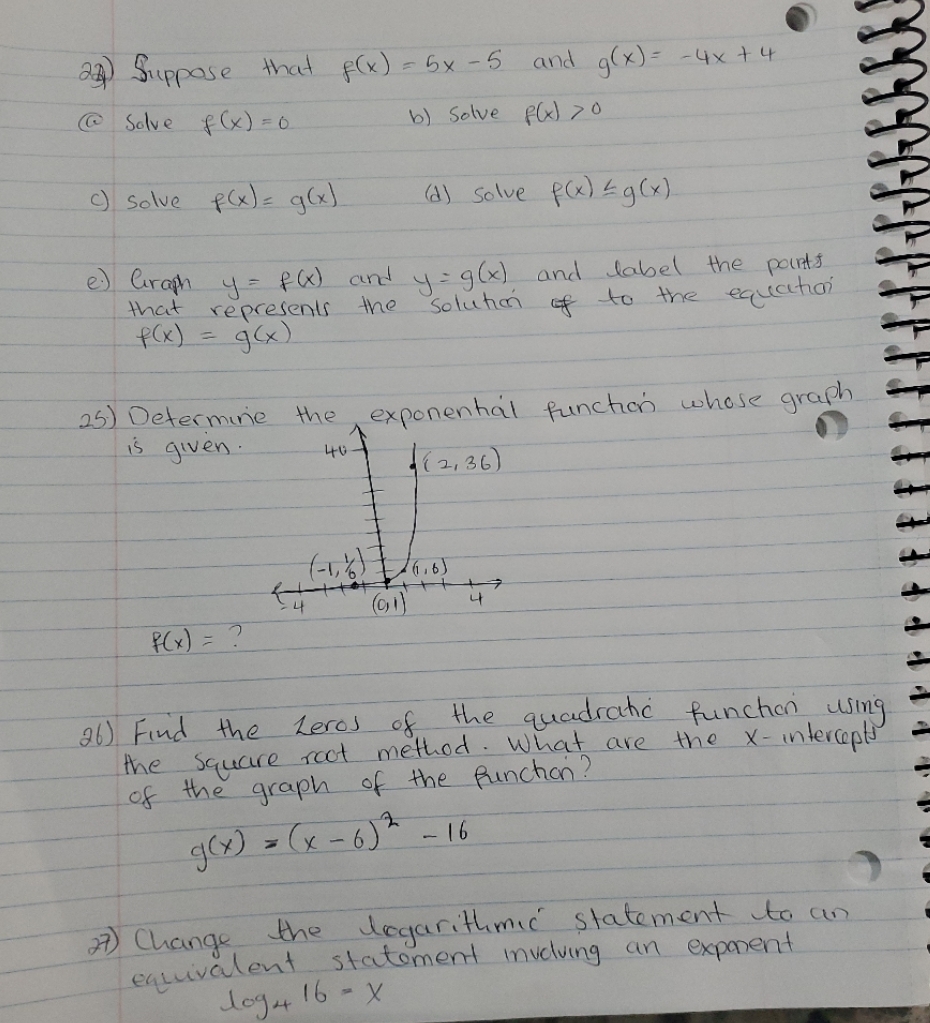 24) Suppose that f(x) = 5x - 5 and g(x) = -4x + 4
(a) Solve f(x) = 0 b) Solve f(x) > 0
c) solve f(x) = g(x) (d) solve f(x) ≤ g(x)
e) Graph y = f(x) and y = g(x) and label the points
that represents the solution to the equation
f(x) = g(x)
25) Determine the exponential function whose graph
is given.
40
(2, 36)
(-1, 1/6) (1, 6)
-4 (0,1) 4
f(x) = ?
26) Find the zeros of the quadratic function using
the square root method. What are the x-intercepts
of the graph of the function?
g(x) = (x - 6)² - 16
27) Change the logarithmic statement to an
equivalent statement involving an exponent
log₄ 16 = x